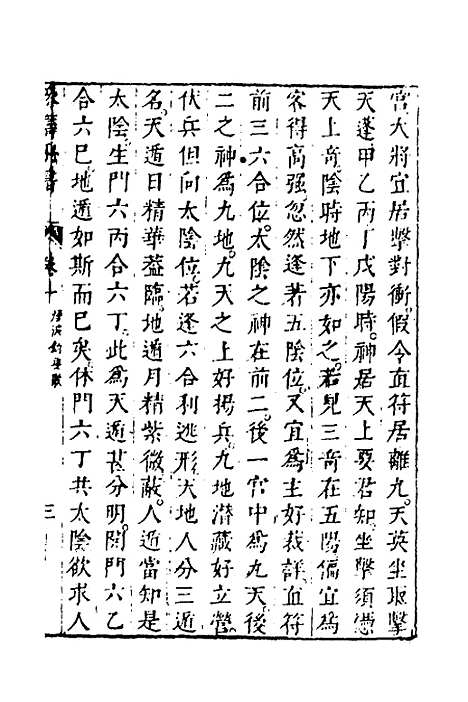 宮大將宜居擊對衝。假令直符居離九。天英坐取擊
天蓬甲乙丙丁戊陽時。神居天上要君知。坐擊須憑
天上奇陰時地下亦如之。若見三奇在五陽偏宜爲
客得高强忽然逢著五陰位。又宜爲主好裁詳。直符
前三六合位。太陰之神在前二。後一宮中爲九天後
二之神爲九地。九天之上好揚兵。九地潛藏好立營。
伏兵但向太陰位。若逢六合利逃形天地人分三遁
名。天遁日精華葢臨。地遁月精紫微蔽。人遁當知是
太陰生門六丙合六丁。此爲天遁甚分明。開門六乙
合六巳地遁如斯而巳矣。休門六丁共太陰欲求人
卷十
三